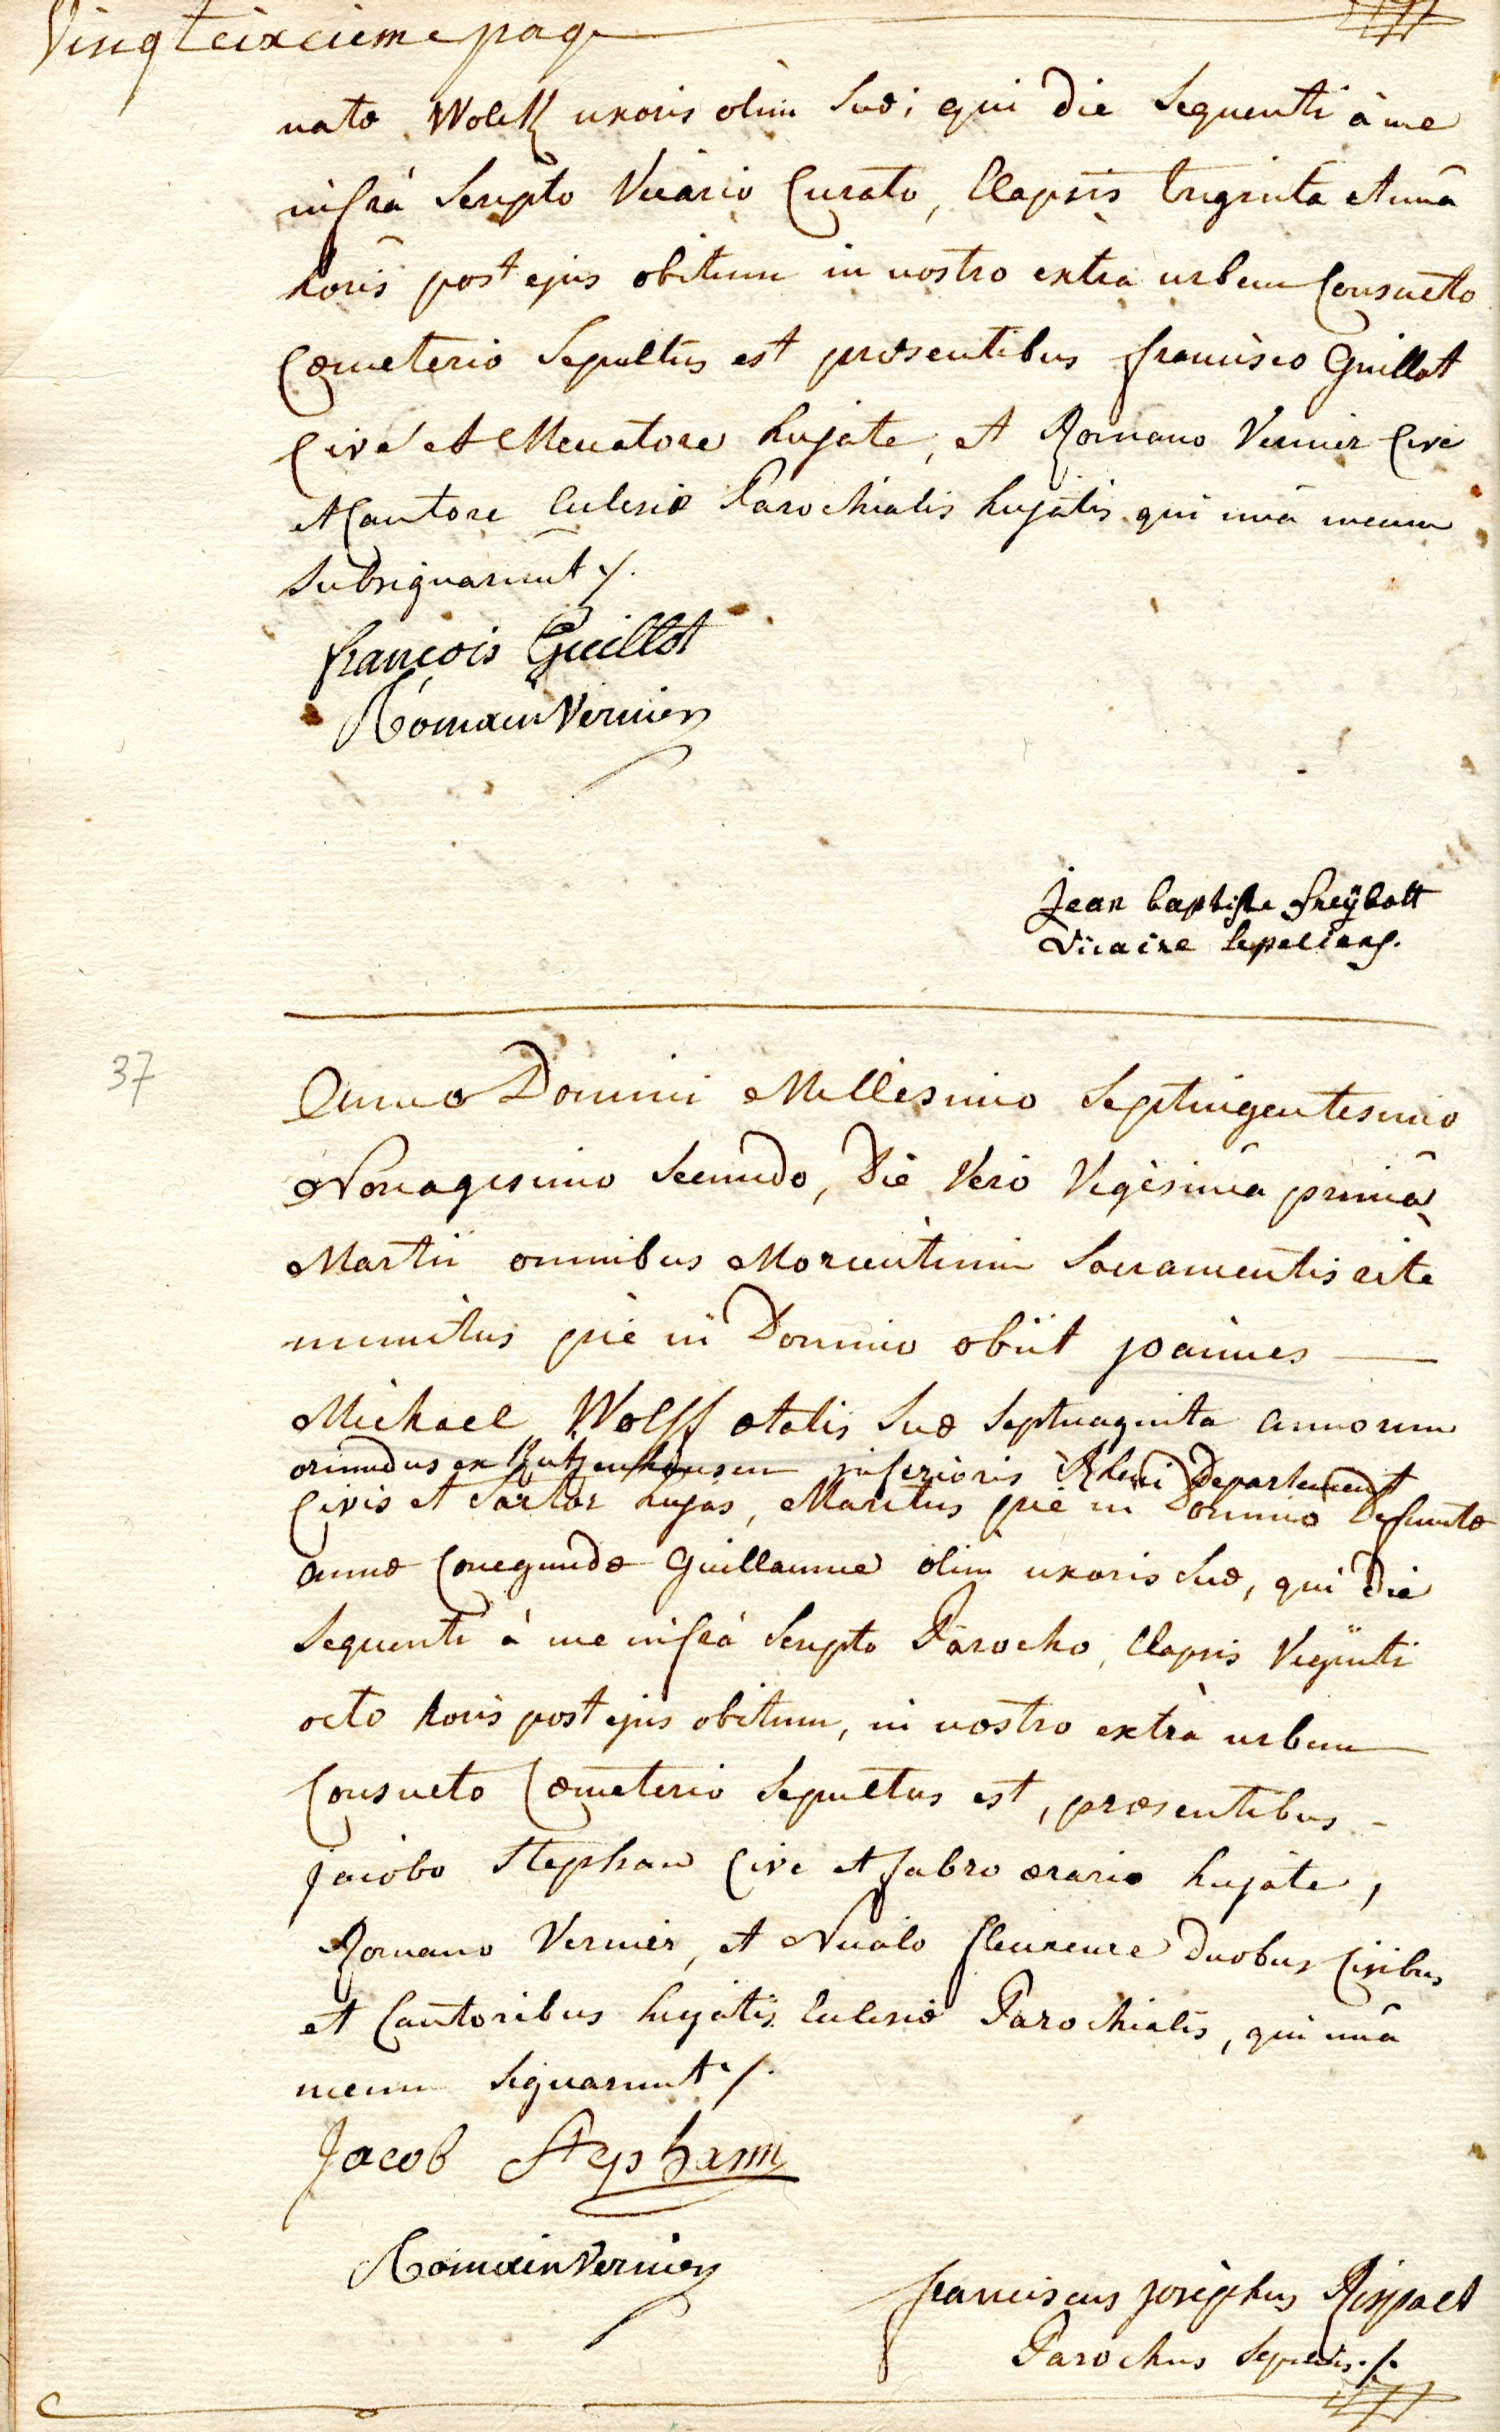 Vingt sixieme page
natæ Wolck uxoris olim suæ; qui die sequenti à me
infrà scripto Vicario Curato, Elapsis triginta et unâ
horis post ejus obitum in nostro extra urbem Consueto
Cœmeterio sepultus est præsentibus francisco Guillot
Cive et Mercatore hujate, et Romano Vernier Cive
et Cantore Ecclesiæ Parochialis hujatis qui unà mecum
subsignarunt ./.
françois Guillot
Romain Vernier
Jean baptiste freÿbott
Vicaire
37
Anno Domini Millesimo Septingentesimo
Nonagesimo secundo, Die Vero Vigesimâ primâ
Martii omnibus Morientium Sacramentis rite
munitus piè in Domino obiit joannes
Michael Wolff ætatis suæ septuaginta annorum
oriundus ex Kutzenhausen inferioris Rheni Departement
Civis et Sartor hujas, Maritus piè in Domino Defunctæ
annæ Conegundæ Guillaume olim uxoris suæ, qui die
sequenti à me infrà scripto Parocho, Elapsis Viginti
octo horis post ejus obitum, in nostro extrà urbem
Consueto Cœmeterio sepultus est, præsentibus
jacobo Stephan Cive et fabro ærario hujate,
Romano Vernier, et Nicolo fleurence duobus Civibus
et Cantoribus hujatis Ecclesiæ Parochialis, qui unà
mecum signarunt ./.
Jacob Stephann
Romain Vernier
franciscus josephus Rispalt
Parochus